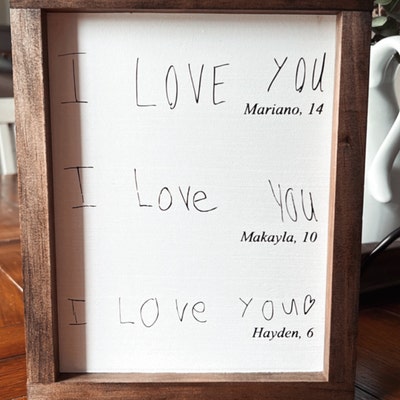 I LOVE YOU
Mariano, 14
I Love You
Makayla, 10
I LOve YOU♡
Hayden, 6